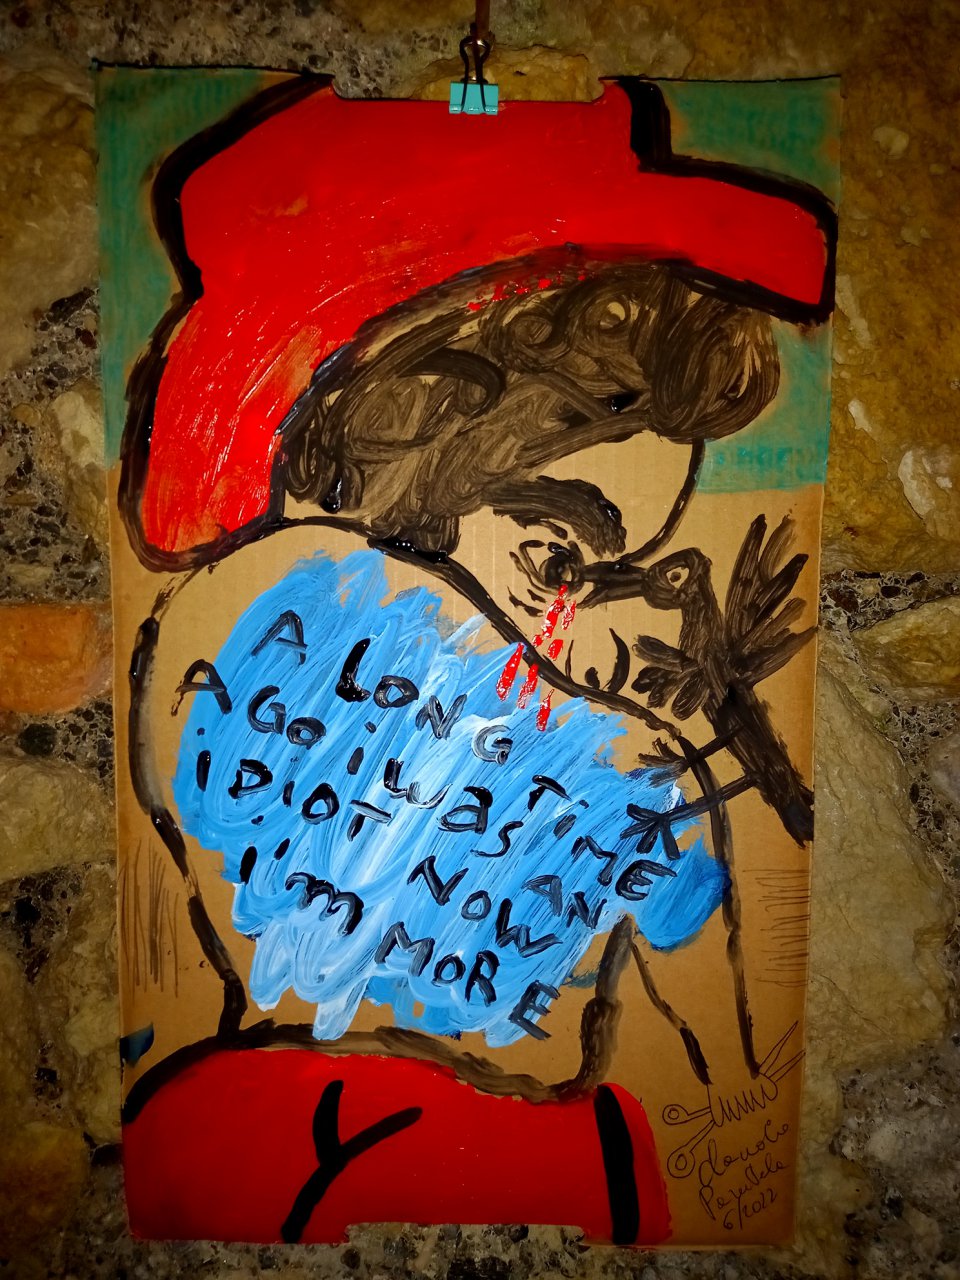 A LONG TIME
AGO i WAS AN
iDiOT NOW
i'm MORE
6/2022